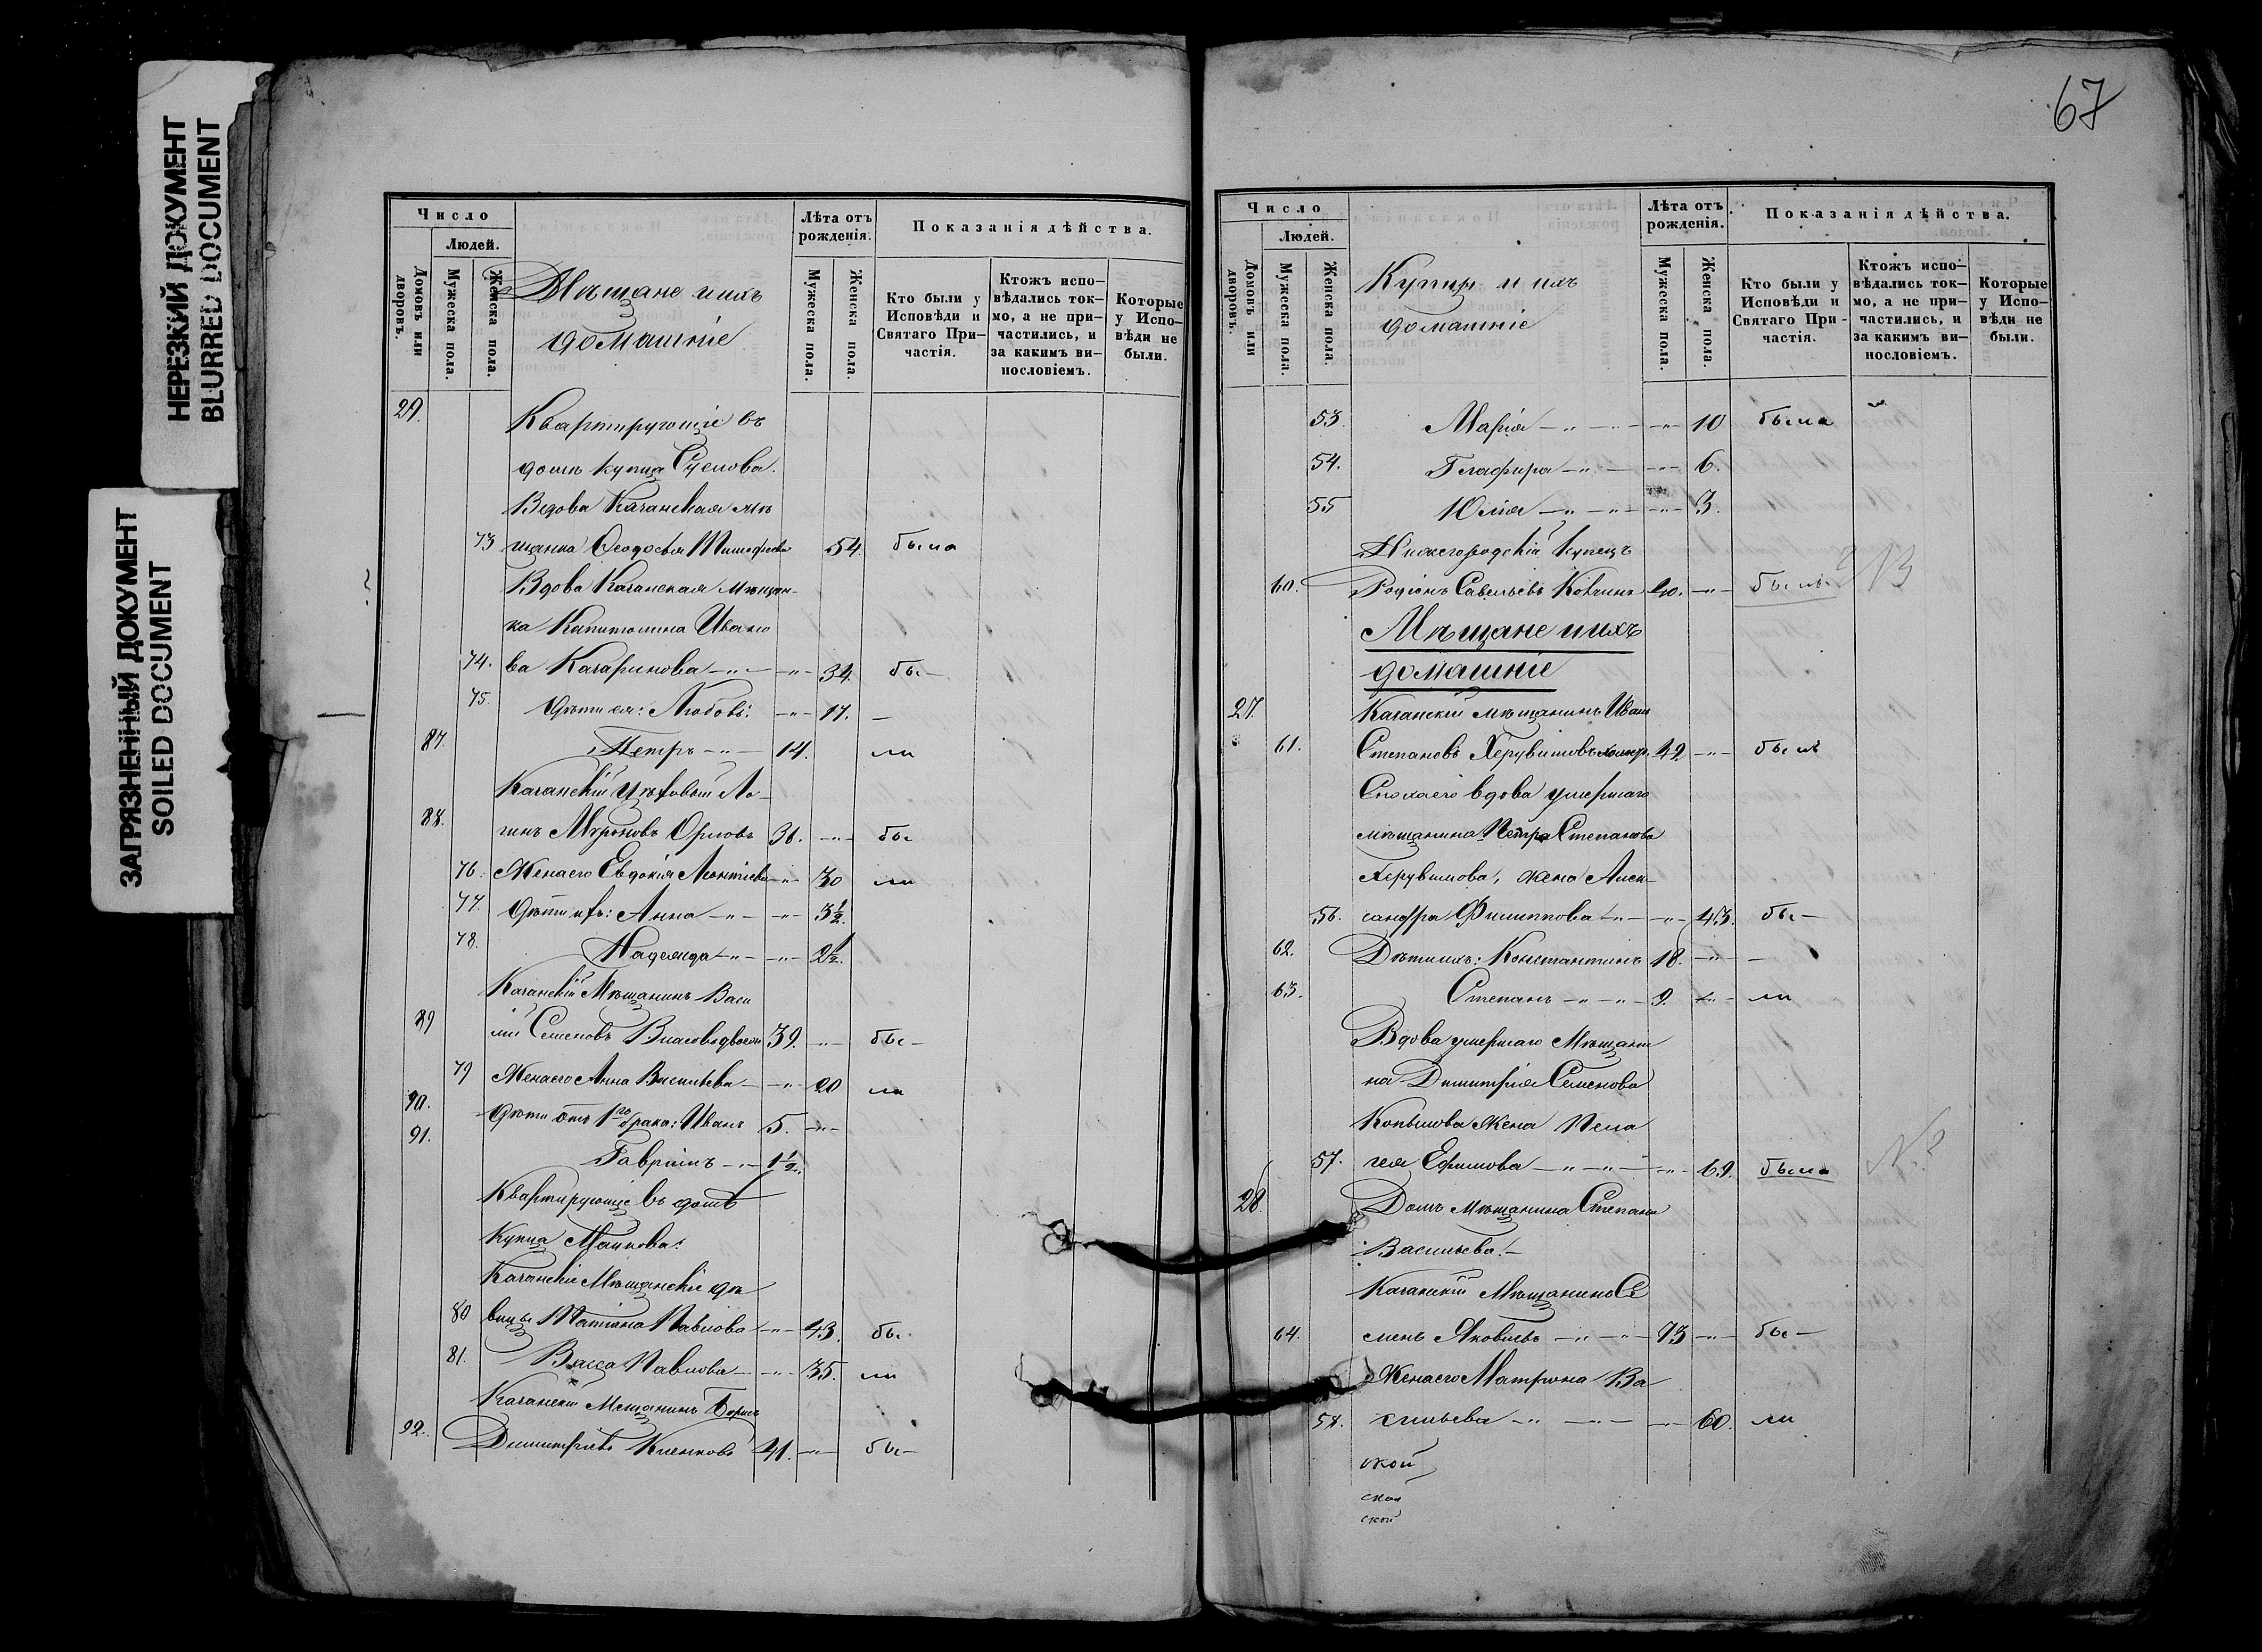 НЕРЕЗКИЙ ДОКУМЕНТ
BLURRED DOCUMENT
ЗАГРЯЗНЕННЫЙ ДОКУМЕНТ
SOILED DOCUMENT
Число
Людей.
Домовъ или дворовъ.
Мужеска пола.
Женска пола.
Мѣщане и ихъ
домашніе
Лѣта отъ рожденія.
Мужеска пола.
Женска пола.
Показанія дѣйства.
Кто были у Исповѣди и Святаго При-частія.
Ктожъ испо-вѣдались ток-мо, а не при-частились, и за какимъ ви-нословіемъ.
Которые у Испо-вѣди не были.
29. Квартирующіе въ
домѣ купца
Вдова Казанская мѣ
73 щанка Ѳеодосья 54. была
Вдова Казанская мѣщан-
ка Капитолина Ивано
74. ва 34. бы-
75. дѣти ея: Любовь: 17. -
87. Петръ 14. ли
Казанскій цѣховый Ло-
88. гинъ Мироновъ Орловъ 36. бы
76. Жена его Евдокія Леонтіева 30 ли
77. дѣти ихъ: Анна 3 1/2.
78. Надежда 2 1/2.
Казанскій Мѣщанинъ Васи
89 лій Семеновъ 39. бы-
79 Жена его Анна Васильева 20 ли
90. дѣти отъ 1го брака: Иванъ 5.
91. Гавріилъ 1 1/2.
Квартирующіе въ домѣ
Купца
Казанскіе Мѣщанскіе дѣ
80 вицы Татіана Павлова 43. бы.
81. Васса Павлова 35. ли
Казанскій Мещанинъ Борисъ
92. Димитріевъ 41. бы-
67
Число
Людей.
Домовъ или дворовъ.
Мужеска пола.
Женска пола.
Купцы и ихъ
домашніе
Лѣта отъ рожденія.
Мужеска пола.
Женска пола.
Показанія дѣйства.
Кто были у Исповѣди и Святаго При-частія.
Ктожъ испо-вѣдались ток-мо, а не при-частились, и за какимъ ви-нословіемъ.
Которые у Испо-вѣди не были.
53. Марія 10 была
54. Глафира 6.
55 Юлія 3.
Нижегородскій купецъ
60. Родіонъ Савельевъ 40. былъ
Мѣщане и ихъ
домашніе
27. Казанскій мѣщанинъ Иванъ
61. Степановъ Херувимовъ 42 былъ
Сноха его вдова умершаго
мѣщанина Петра Степанова
Херувимова, жена Алек-
56. сандра Филиппова 43. бы-
62. Дѣти ихъ: Константинъ 18. -
63. Степанъ 9. ли
Вдова умершаго Мѣщани
на Димитрія Семенова
Копылова жена Пела
57. гея Ефимова 69. была
28. Домъ мѣщанина Степана
Васильева.
Казанскій Мѣщанинъ Се
64. менъ Яковлевъ 73 бы-
Жена его Матрона Ва
58. сильева 60. ли
ской
ская
ской